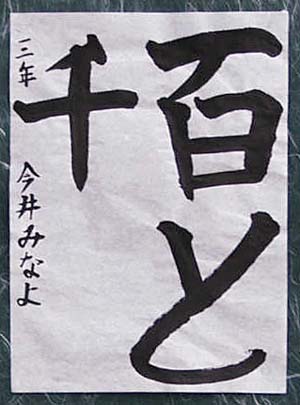 百と
千
三年 今井みなよ